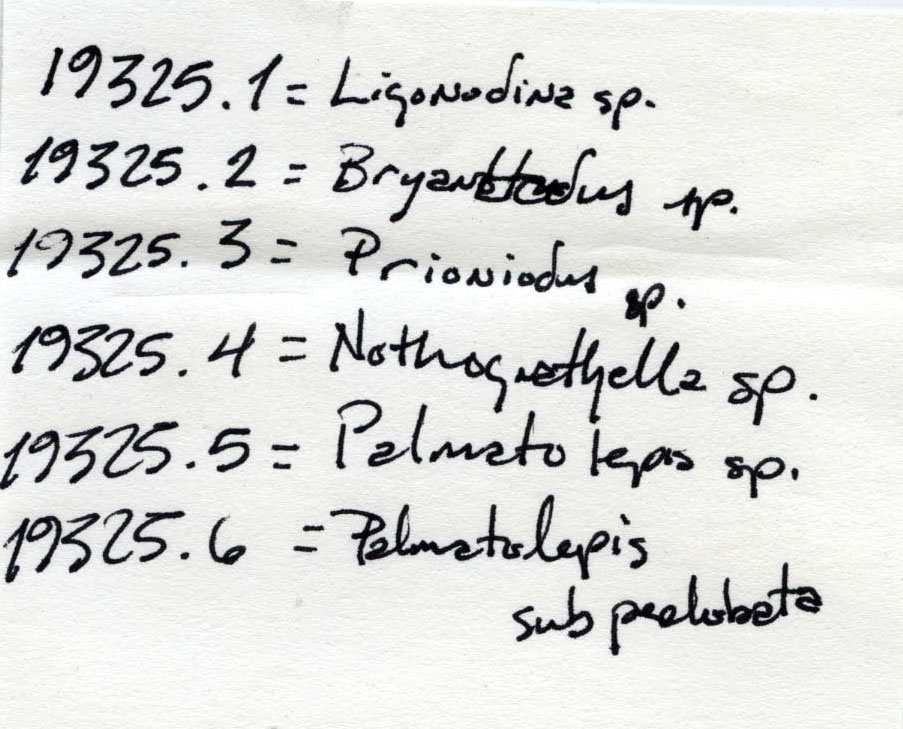 19325.1 = Ligonodina sp.
19325.2 = Bryantodus sp.
19325.3 = Prioniodus sp.
19325.4 = Nothognathella sp.
19325.5 = Palmatolepis sp.
19325.6 = Palmatolepis
sub